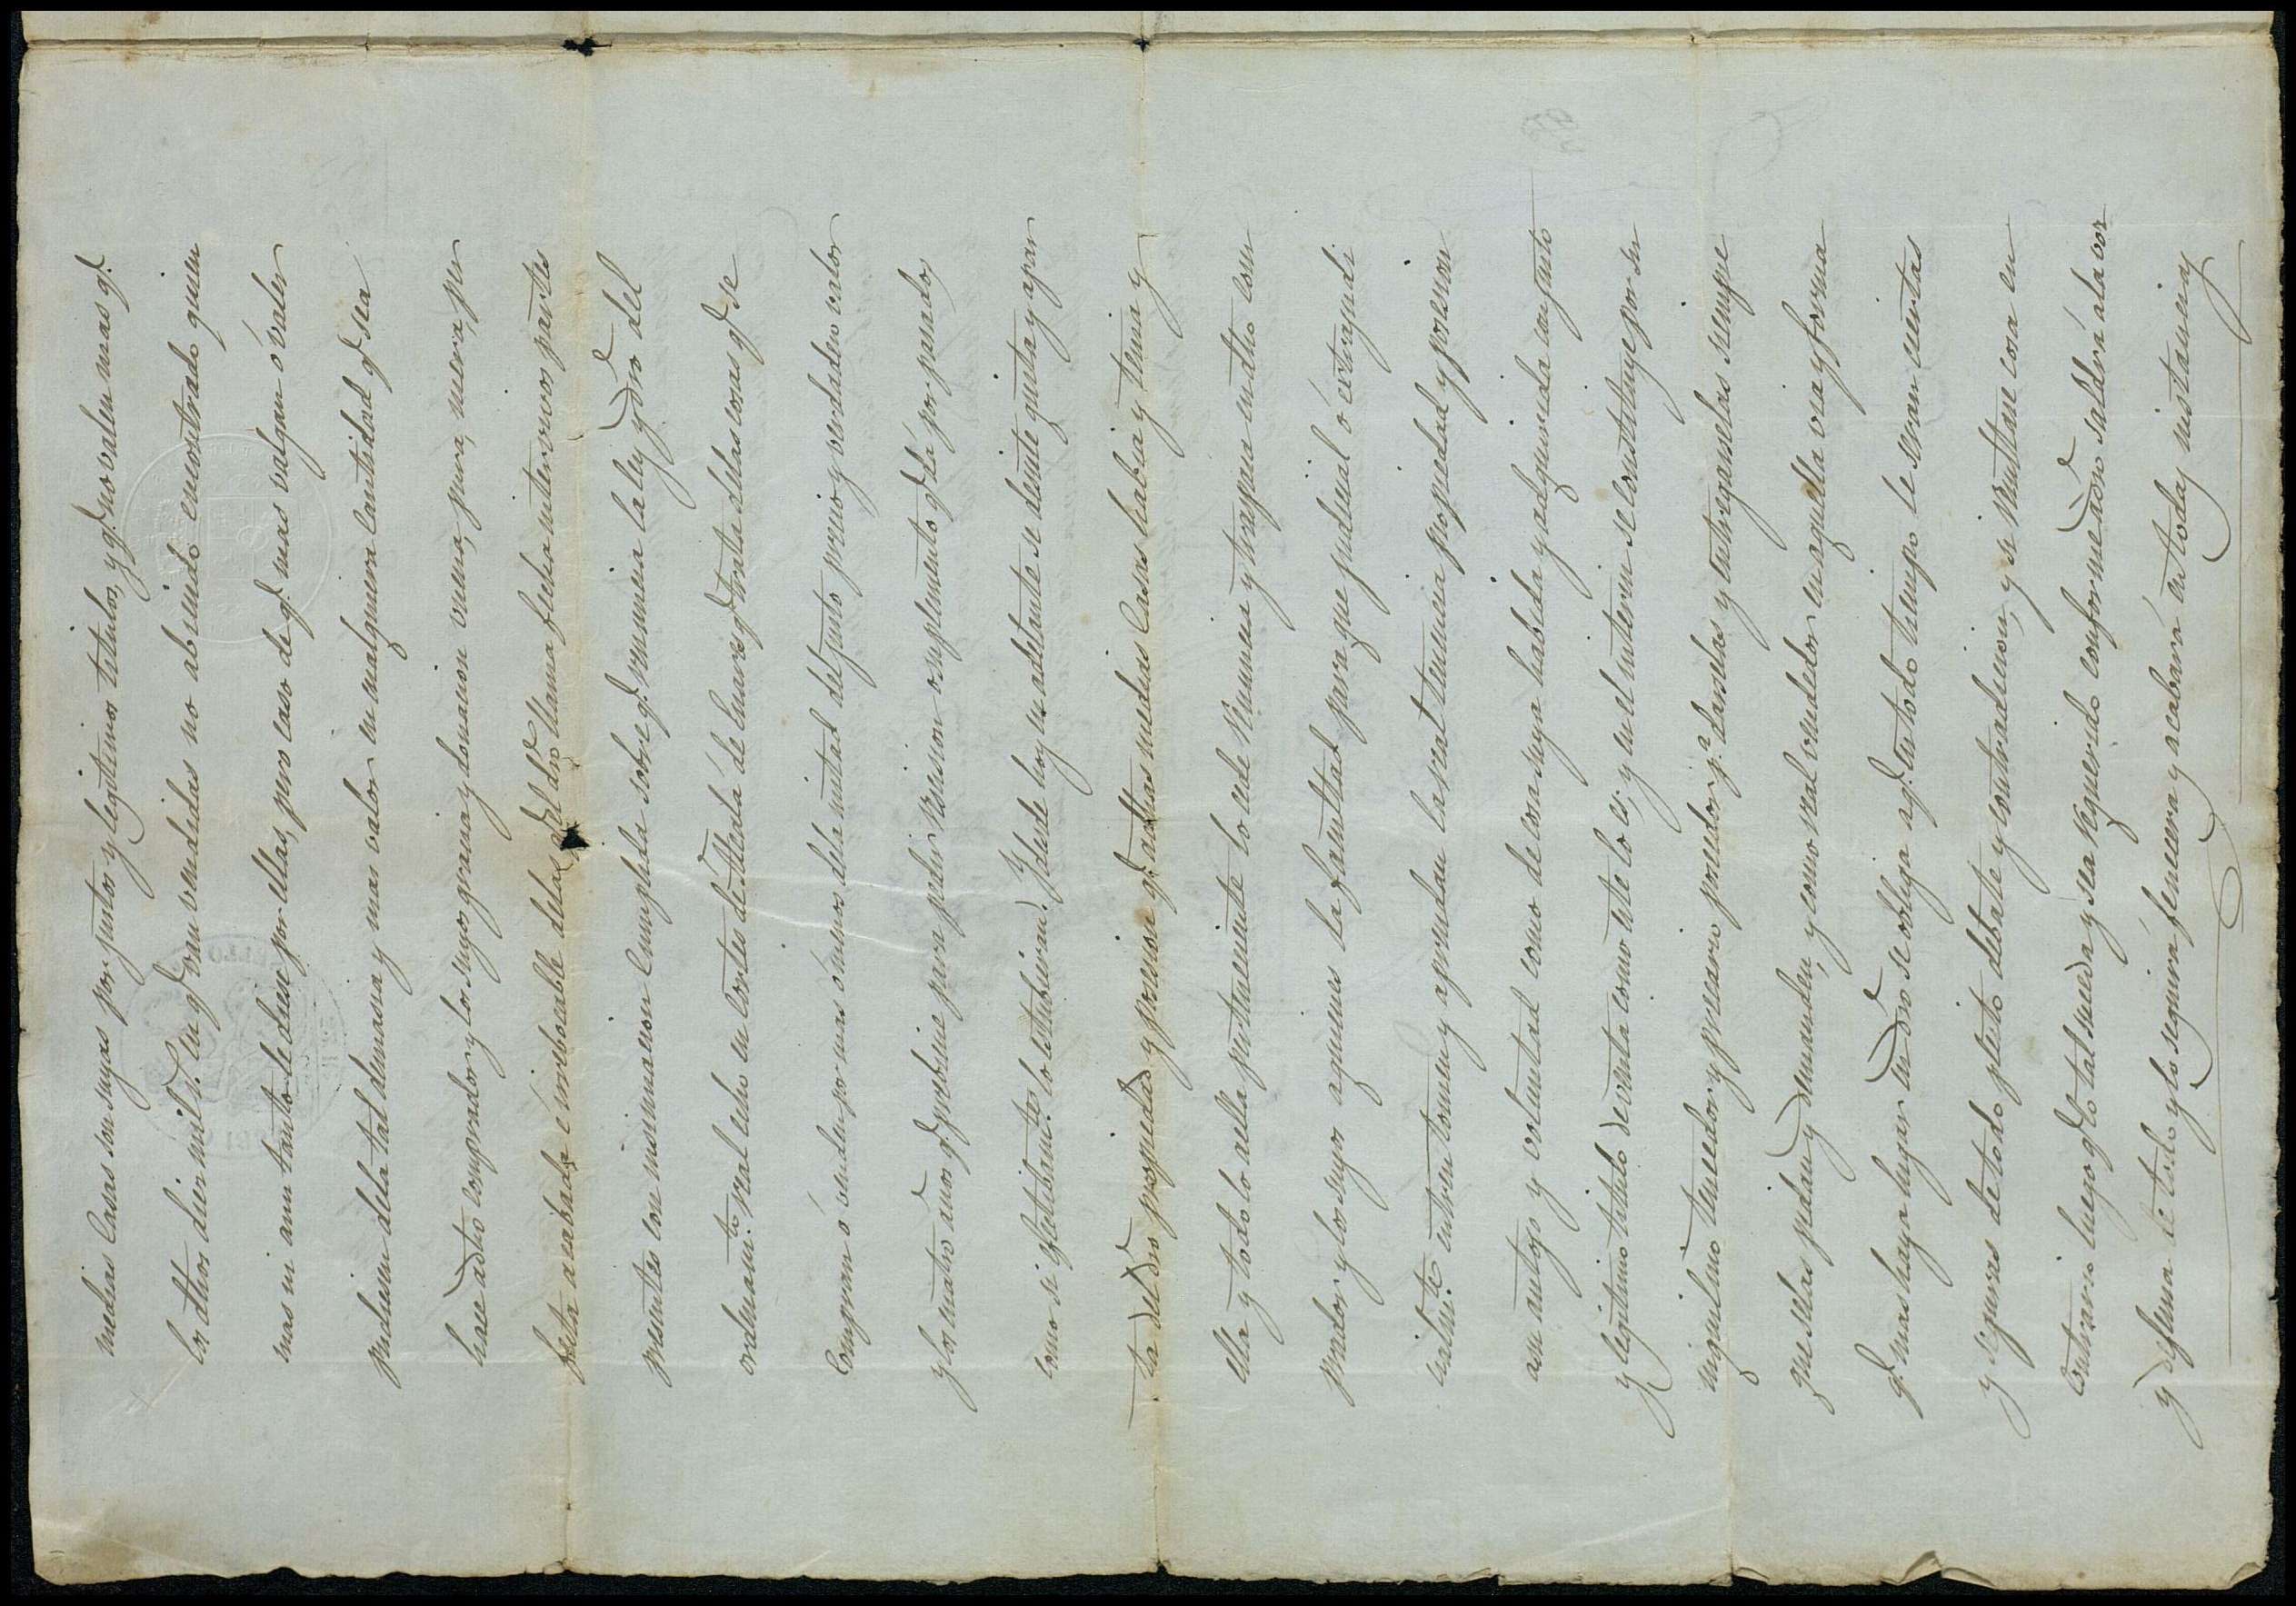 medias Casas son suyas por justos y legitimos titulos, y q.e no valen mas q.e
los dhos diez mil r.s en q.e van vendidas no abiendo encontrado quien
mas ni aun tanto le diese por ellas, pero caso de q.e mas valgan ó valer
pudiesen dela tal demasia y mas valor en cualquiera cantidad q.e sea
hace adho comprador y los suyos gracia y donacion buena, pura, mera, per
fecta acabada é irrebocable delas q.e el dro llama fecha intervivos partes
presentes con insinuacion Cumplida sobre q.e renuncia la ley y dro del
ordenam.to real echo en Cortes de Alcalá de Enares q.e trata delas cosas q.e se
Compran ó venden por mas ó menos dela mitad del justo precio y verdadero valor
y los cuatro años q.e prebiene para pedir recision o suplemento q.e dá por pasados
como si efetibam.te lo estubieran. Y desde hoy en adelante se desiste quita y apar
ta del dro propiedad y posesion q.e adhas medias Casas habia y tenia y
ella y todo lo aella perteneciente lo cede renuncia y traspasa en dho com
prador y los suyos aquienes da facultad para que judicial o extrajudi
cialm.te entren tomen y aprendan la real tenencia propiedad y posesion
asu antojo y voluntad como de cosa suya habida y adquirida con justo
y legitimo titulo de venta como este lo es; y en el interin se constituye por su
inquilino tenedor y precario poseedor p.a darselas y entregarselas siempre
que selas pidan y demanden, y como real vendedor en aquella via y forma
q.e mas haya lugar en dro se obliga aq.e en todo tiempo le seran ciertas
y seguras de todo pleito debate y contradicion, y si resultase cosa en
Contrario luego q.e lo tal suceda y sea requerido conforme adro saldrá ala voz
y defensa de todo y lo seguirá fenecera y acabará en todas instancias